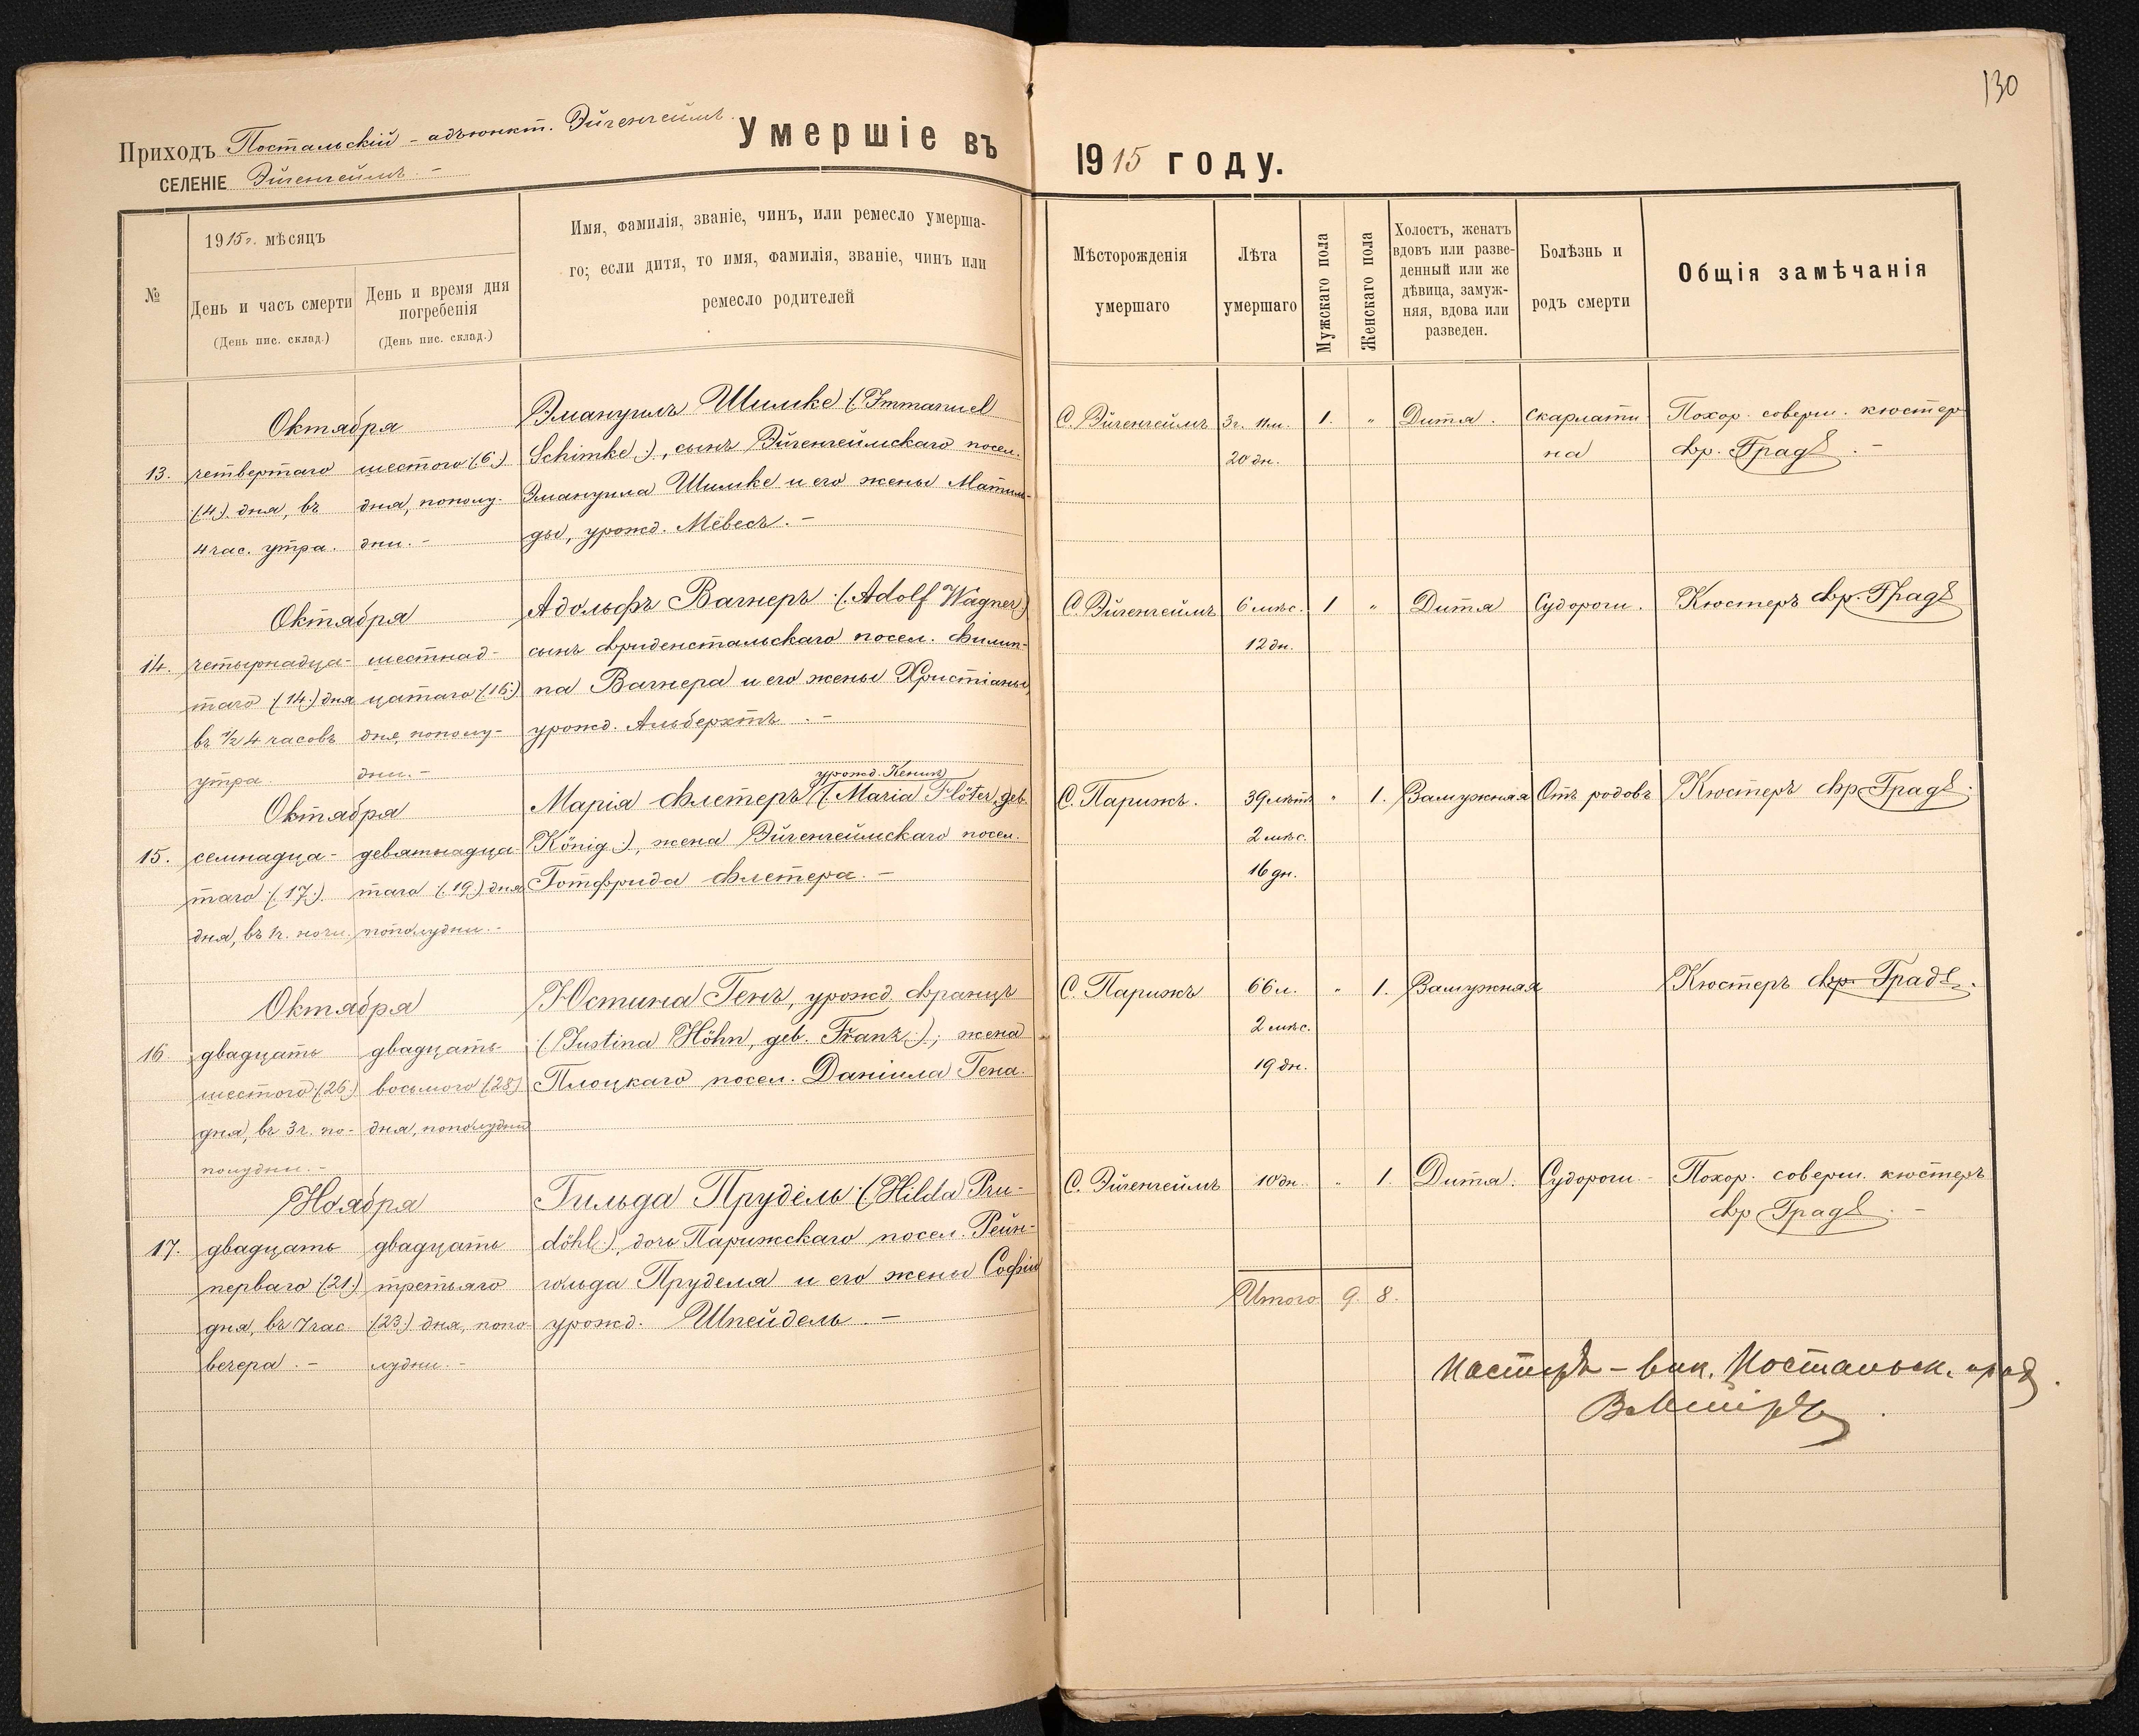 130
Приходъ Постальскій - адъюнкт. Эйгенгеймъ.
СЕЛЕНІЕ Эйгенгеймъ. -
Умершіе въ 1915 году.
№
1915 г. мѣсяцъ
День и часъ смерти
(День пис. склад.)
День и время дня
погребенія
(День пис. склад.)
Имя, фамилія, званіе, чинъ, или ремесло умерша-
го; если дитя, то имя, фамилія, званіе, чинъ или
ремесло родителей
Мѣсторожденія
умершаго
Лѣта
умершаго
Мужскаго пола
Женскаго пола
Холостъ, женатъ
вдовъ или разве-
денный или же
дѣвица, замуж-
няя, вдова или
разведен.
Болѣзнь и
родъ смерти
Общія замѣчанія
13.
Октября
четвертаго
(4.) дня, въ
4 час. утра.
шестого (6.)
дня, пополу-
дни. -
Эмануилъ Шимке (Immanuel
Schimke), сынъ Эйгенгеймскаго посел.
Эмануила Шимке и его жены Матиль-
ды, урожд. Мёвесъ. -
С. Эйгенгеймъ
3 г. 11 м.
20 дн.
1.
"
Дитя.
Скарлати
на
Похор. соверш. кюстер
Фр. Градъ. -
14.
Октября
четырнадца-
таго (14.) дня
въ ½4 часовъ
утра.
шестнад-
цатаго (16.)
дня, пополу-
дни. -
Адольфъ Вагнеръ (Adolf Wagner)
сынъ Фриденстальскаго посел. Филип-
па Вагнера и его жены Христіаны,
урожд. Альберхтъ. -
С. Эйгенгеймъ
6 мѣс.
12 дн.
1
"
Дитя
Судороги.
Кюстеръ Фр. Градъ
15.
Октября
семнадца-
таго (17.)
дня, въ 1 ч. ночи.
девятнадца-
таго (19.) дня
пополудни. -
урожд. Кенигъ
Марія Флетеръ (Maria Flöter, geb.
König), жена Эйгенгеймскаго посел.
Готфрида Флетера. -
С. Парижъ.
39 лѣтъ
2 мѣс.
16 дн.
"
1.
Замужняя
Отъ родовъ
Кюстеръ Фр. Градъ.
16.
Октября
двадцать
шестого (26.)
дня, въ 3 ч. по-
полудни. -
двадцать
восьмого (28.)
дня, пополудни
Юстина Генъ, урожд. Францъ
(Justina Höhn, geb. Franz); жена
Плоцкаго посел. Даніила Гена.
С. Парижъ
66 л.
2 мѣс.
19 дн.
"
1.
Замужняя
Кюстеръ Фр. Градъ.
17.
Ноября
двадцать
перваго (21.)
дня, въ 7 час.
вечера. -
двадцать
третьяго
(23.) дня, попо-
лудни. -
Гильда Прудёль (Hilda Pru-
döhl), дочь Парижскаго посел. Рейн-
гольда Пруделя и его жены Софіи
урожд. Шпейдель. -
С. Эйгенгеймъ
10 дн.
"
1.
Дитя.
Судороги. -
Похор. соверш. кюстеръ
Фр. Градъ. -
Итого 9. 8.
Пасторъ - вик. Постальск. прих.